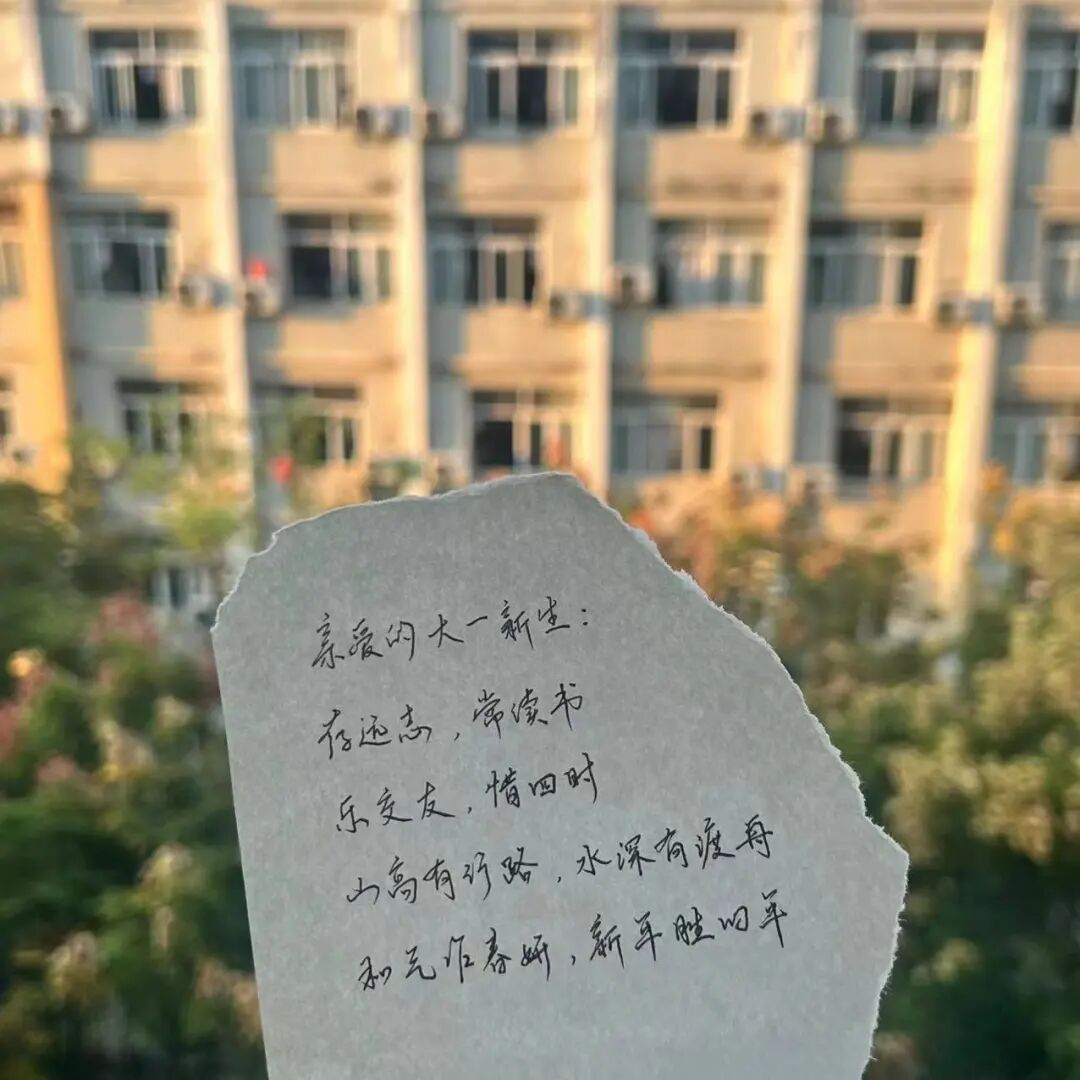 亲爱的大一新生：
存远志，常读书
乐交友，惜四时
山高有行路，水深有渡舟
和气作春妍，新年胜旧年